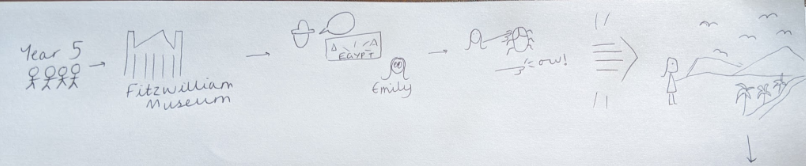 Year 5
Fitzwilliam
Museum
EGYPT
Emily
ow!